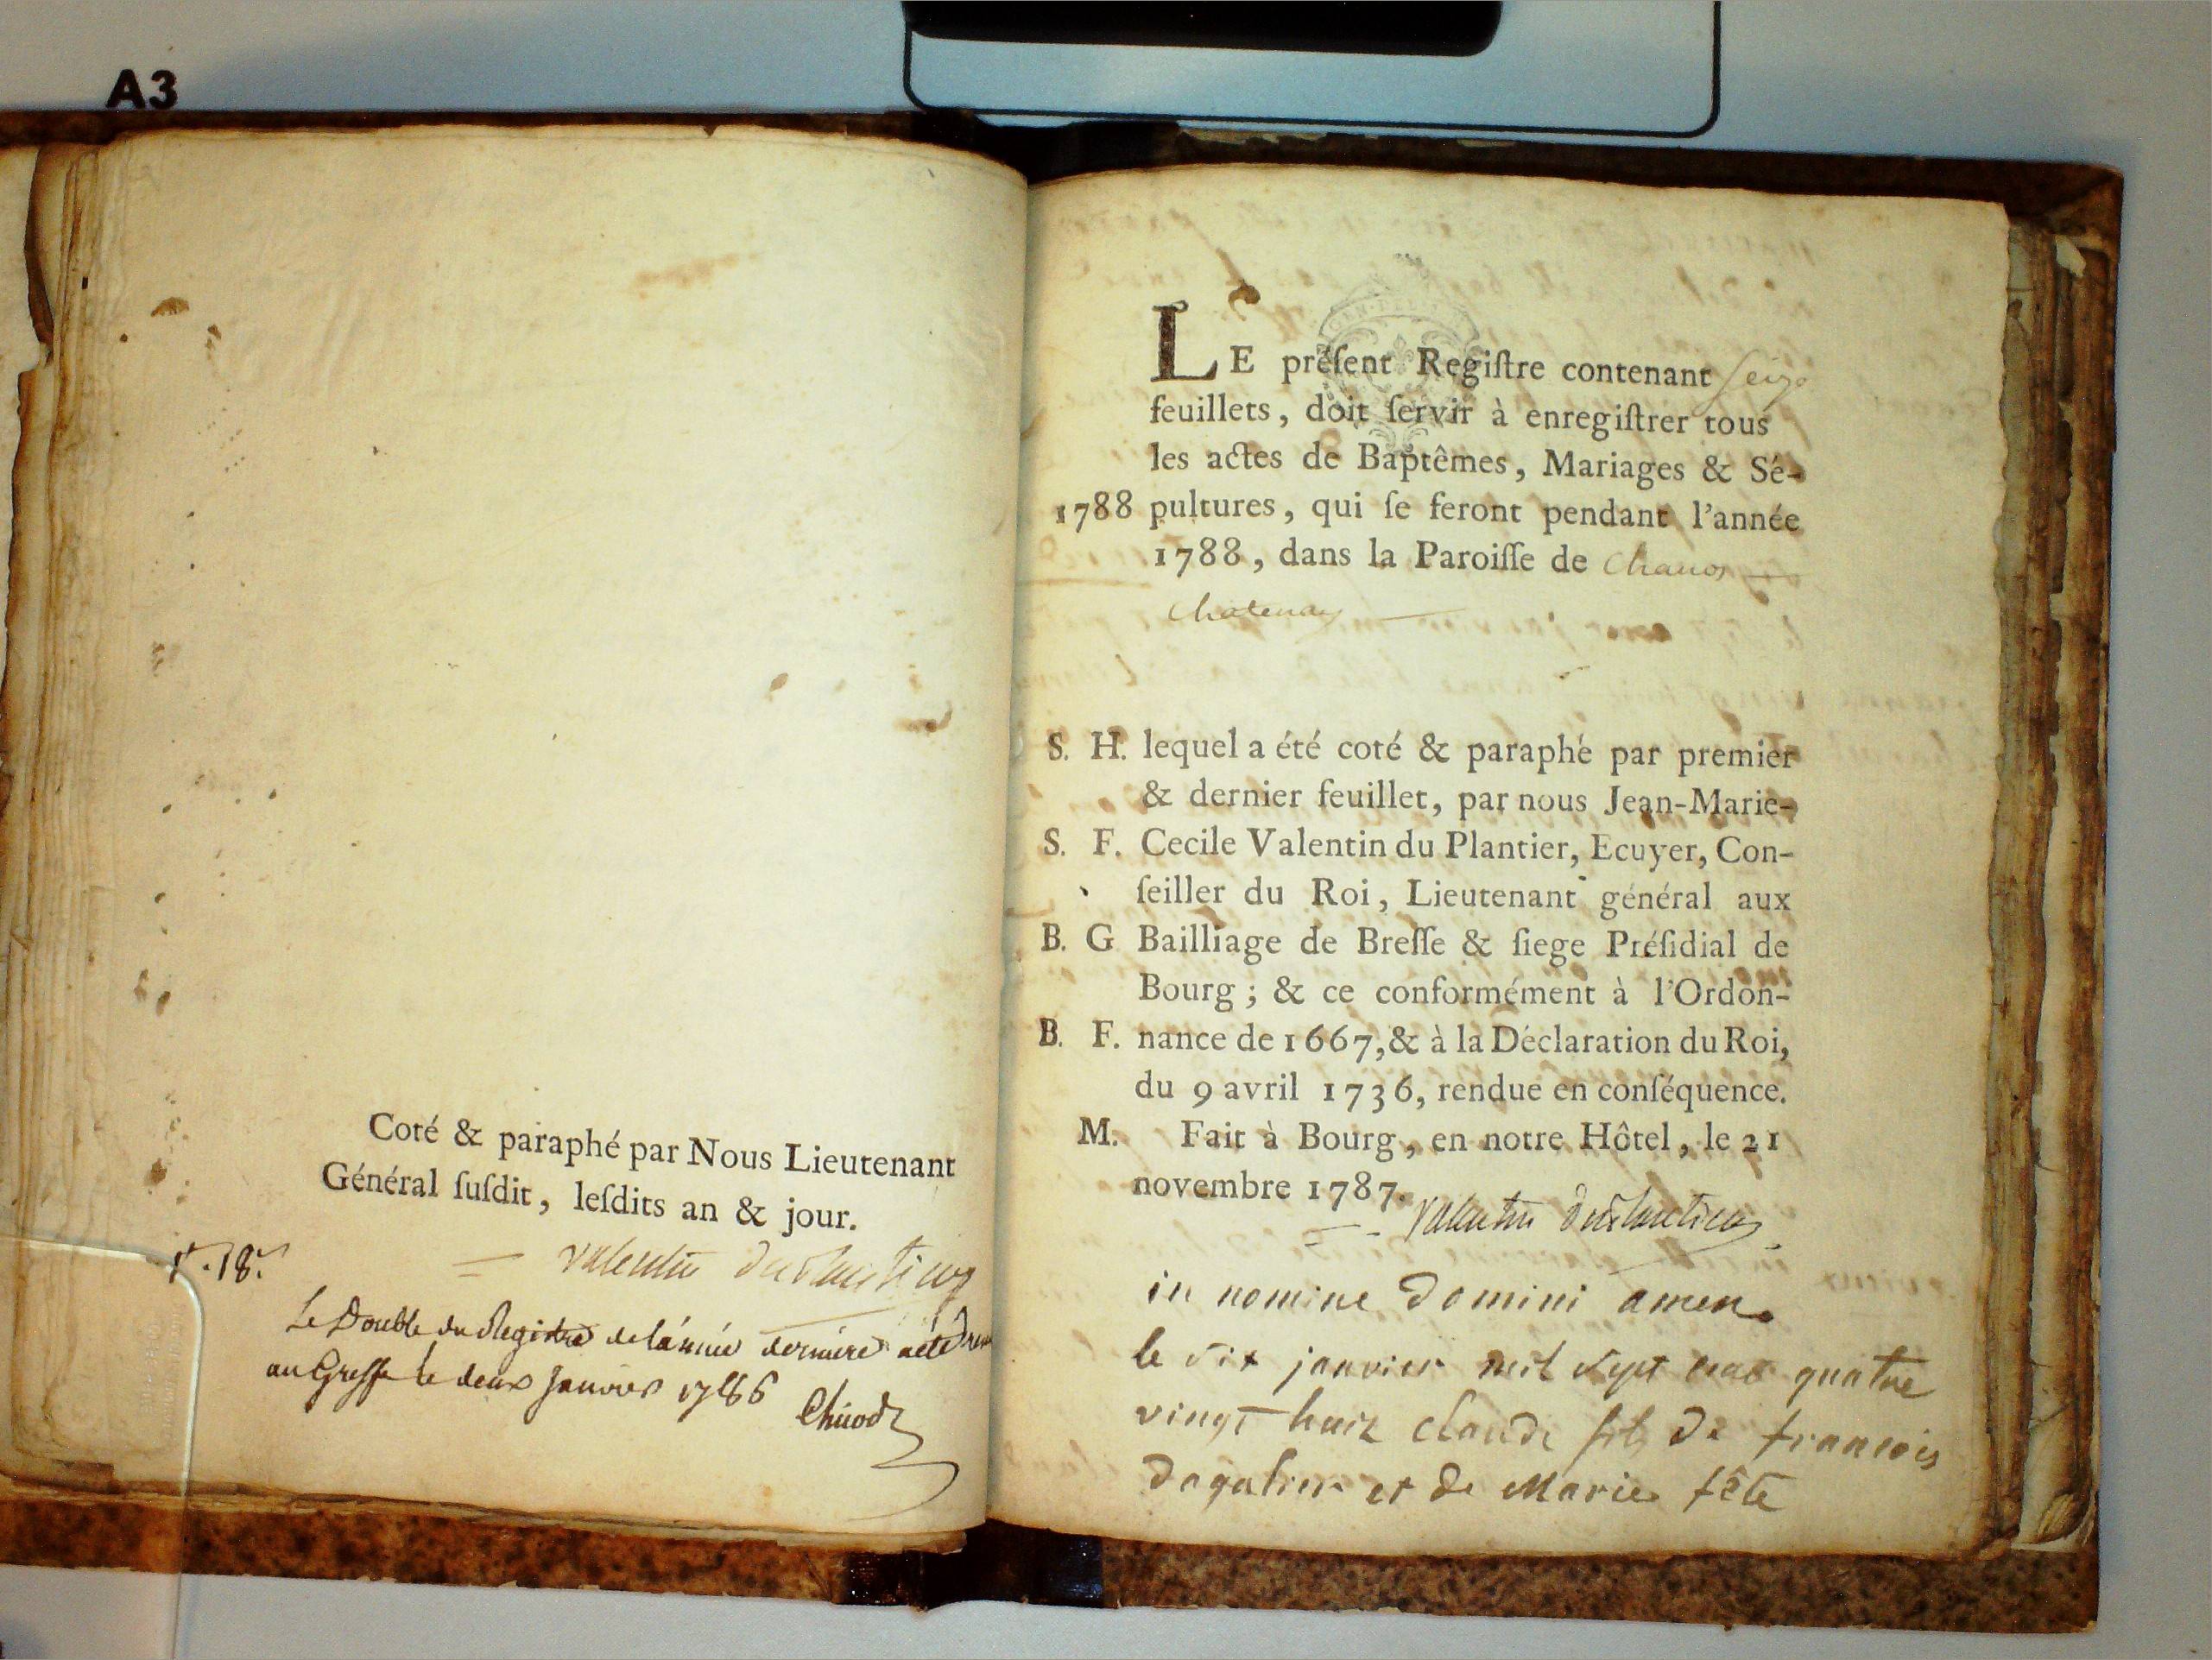 A3
Coté & paraphé par Nous Lieutenant
Général ſuſdit, leſdits an & jour.
Valentin Duplantier
Le Double du Registre de l'année derniere a été
au Greffe le deux Janvier 1786
LE préſent Regiſtre contenant seize
feuillets, doit ſervir à enregiſtrer tous
les actes de Baptêmes, Mariages & Sé-
1788 pultures, qui ſe feront pendant l'année
1788, dans la Paroiſſe de Chanoz
Chatenay
S. H. lequel a été coté & paraphé par premier
& dernier feuillet, par nous Jean-Marie-
S. F. Cecile Valentin du Plantier, Ecuyer, Con-
ſeiller du Roi, Lieutenant général aux
B. G Bailliage de Breſſe & ſiege Préſidial de
Bourg ; & ce conformément à l'Ordon-
B. F. nance de 1667, & à la Déclaration du Roi,
du 9 avril 1736, rendue en conſéquence.
M. Fait à Bourg, en notre Hôtel, le 21
novembre 1787.
Valentin Duplantier
in nomine domini amen.
le dix janvier mil sept cent quatre
vingt huit claude fils de francois
dagalier et de Marie tête